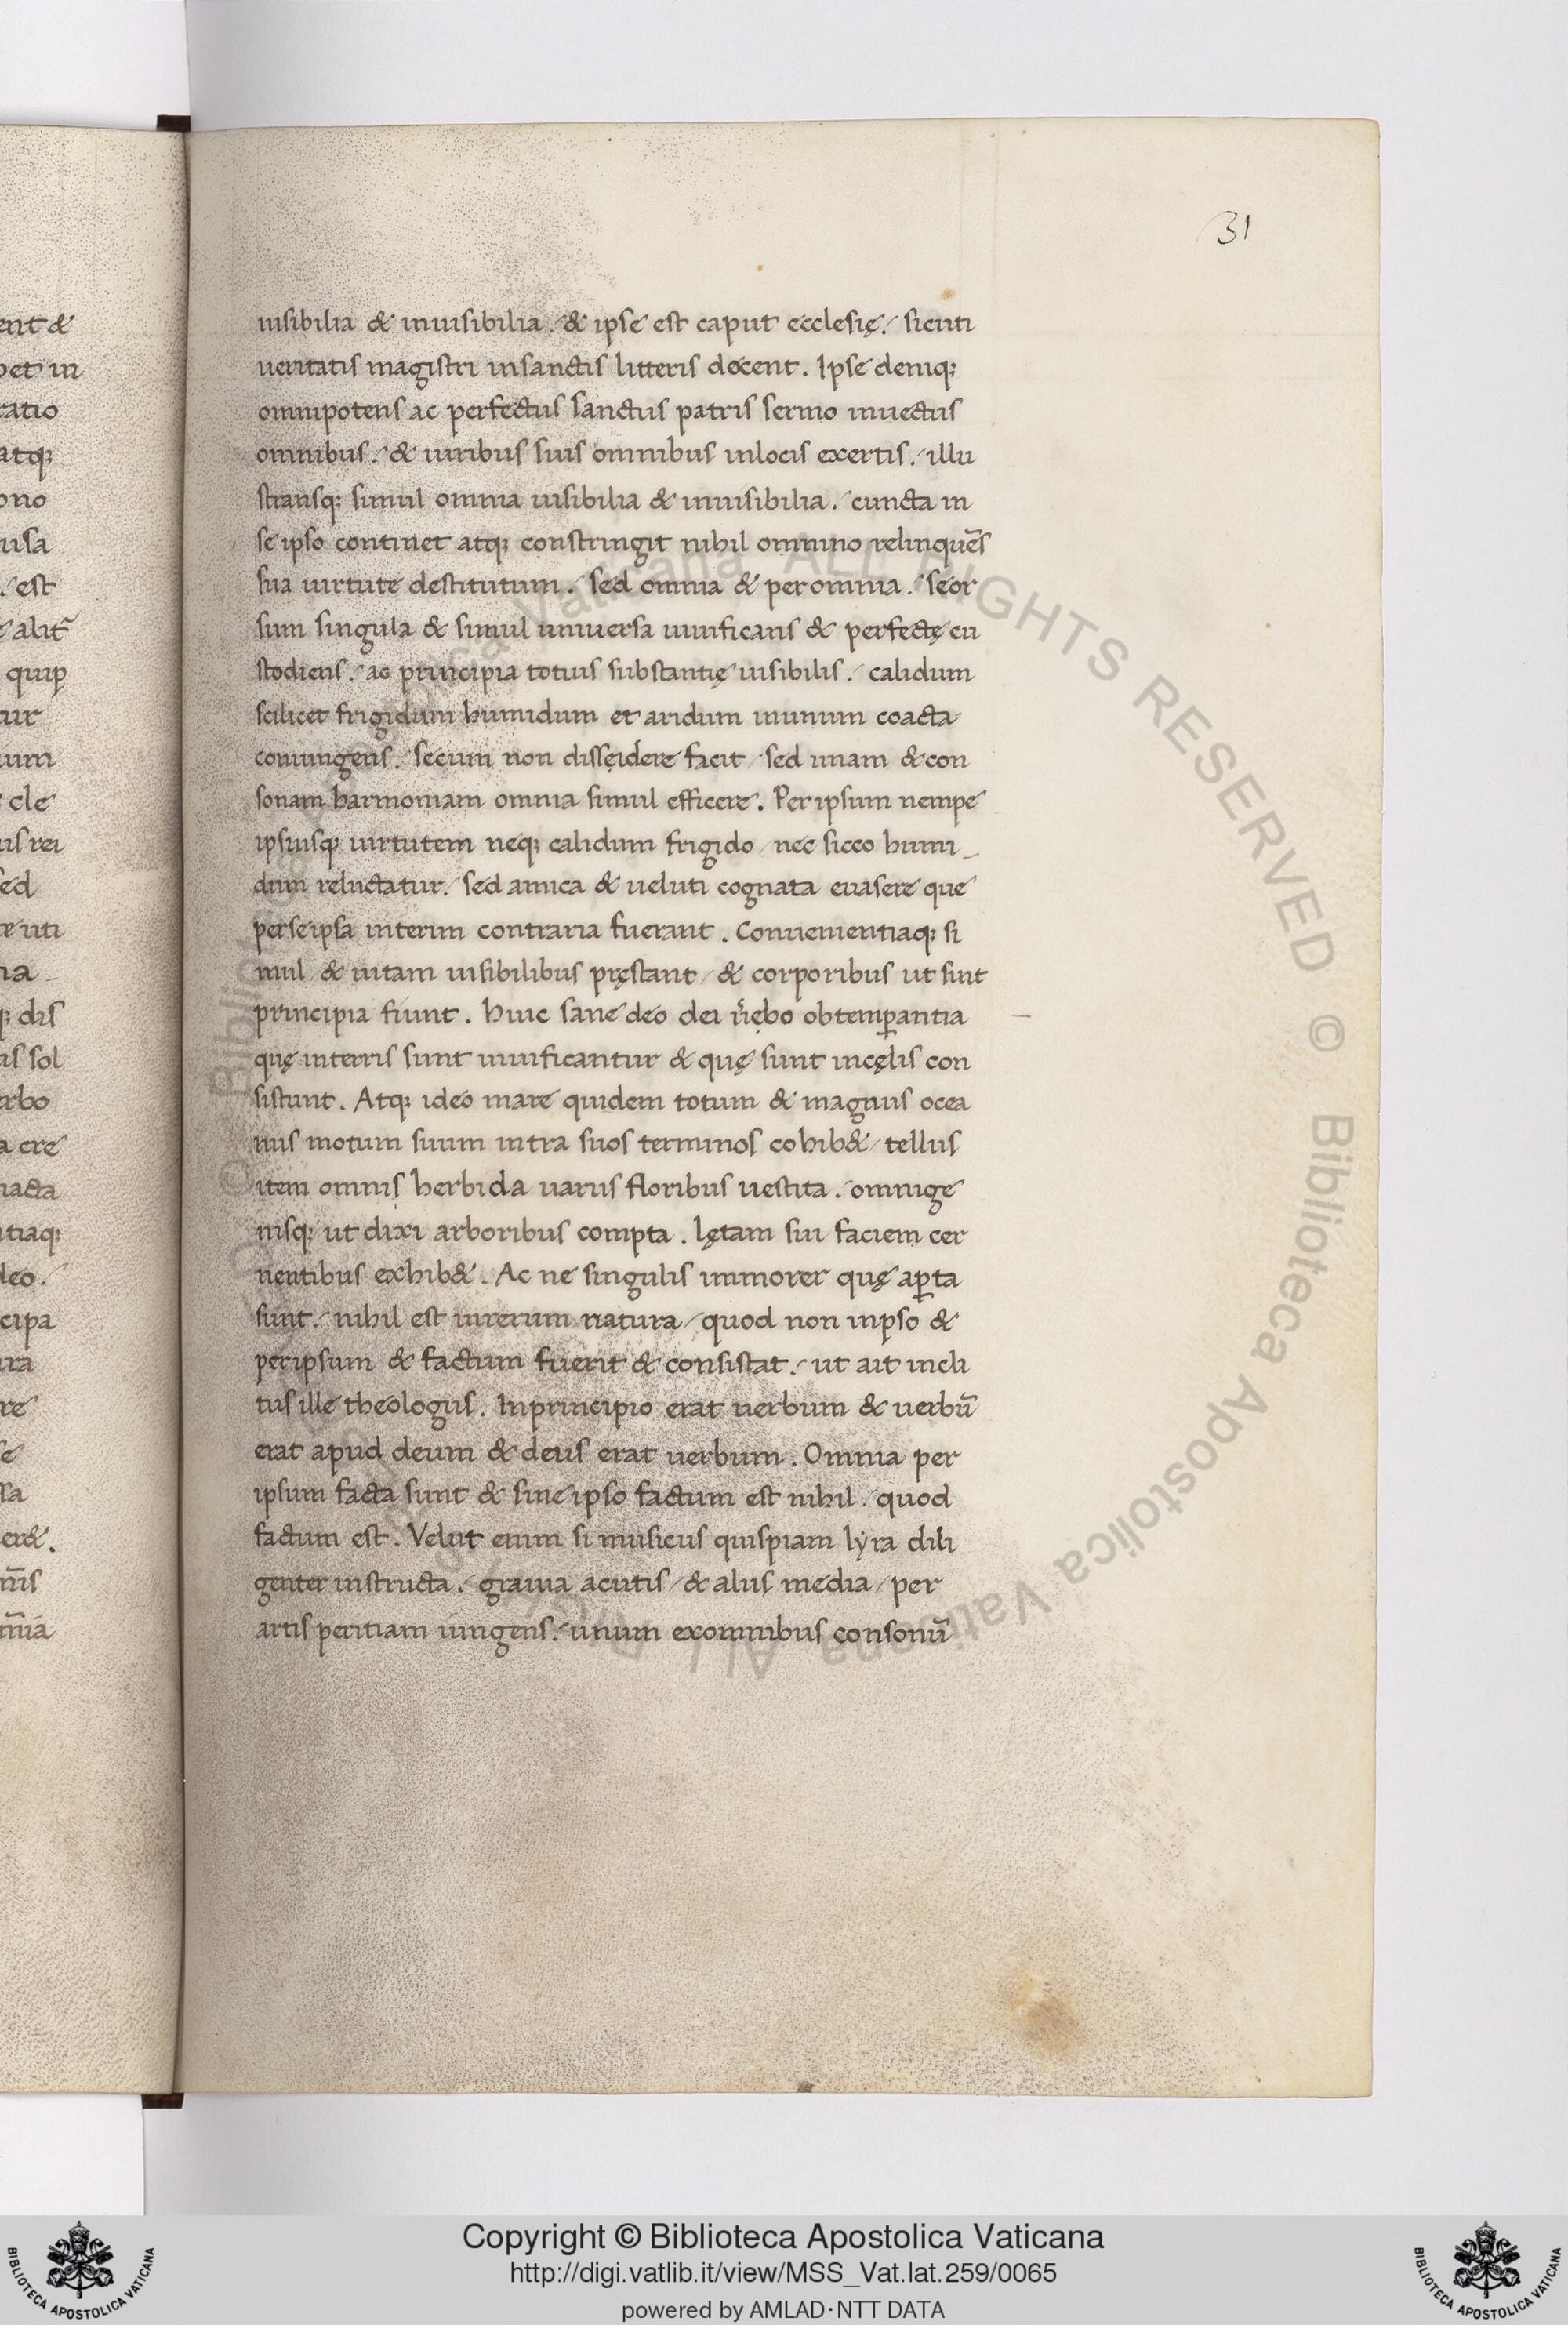 31
uisibilia & inuisibilia. & ipse est caput ecclesię. sicuti
ueritatis magistri insanctis litteris docent. Ipse deniq;
omnipotens ac perfectus sanctus patris sermo inuectus
omnibus. & uiribus suis omnibus inlocis exertis. illu
stransq; simul omnia uisibilia & inuisibilia. cuncta in
se ipso continet atq; constringit nihil omnino relinquēs
sua uirtute destitutum. sed omnia & per omnia. seor
sum singula & simul uniuersa uiuificans & perfectę cu
stodiens. ac principia totius substantię uisibilis. calidum
scilicet frigidum humidum et aridum inunum coacta
coniungens. secum non disseidere facit / sed unam & con
sonam harmoniam omnia simul efficere. Per ipsum nempe
ipsiusq; uirtutem neq; calidum frigido / nec sicco humi
dum reluctatur. sed amica & ueluti cognata euasere que
perseipsa interim contraria fuerant. Conuenientiaq; si
mul & uitam uisibilibus pręstant / & corporibus ut sint
principia fiunt. huic sane deo dei uębo obtemꝑantia
quę interris sunt uiuificantur & quę sunt incęlis con
sistunt. Atq; ideo mare quidem totum & magnus ocea
nus motum suum intra suos terminos cohib& / tellus
item omnis herbida uariis floribus uestita. omnige
nisq; ut dixi arboribus compta. lętam sui faciem cer
nentibus exhib&. Ac ne singulis immorer quę aꝑta
sunt. nihil est inrerum natura / quod non inpso &
per ipsum & factum fuerit & consistat. ut ait incli
tus ille theologus. Inprincipio erat uerbum & uerbū
erat apud deum & deus erat uerbum. Omnia per
ipsum facta sunt & sine ipso factum est nihil. quod
factum est. Velut enim si musicus quispiam lyra dili
genter instructa. grauia acutis / & aliis media / per
artis peritiam iungens. unum exomnibus consonū
ent &
bet in
ratio
atq;
ono
usa
. est
alit̄
quiꝑ
tur
um
cle
us rei
sed
re uti
na
q; dis
is sol
erbo
a cre
nacta
tiaq;
deo.
cipa
ura
re
se
ssa
er&.
Copyright © Biblioteca Apostolica Vaticana
http://digi.vatlib.it/view/MSS_Vat.lat.259/0065
powered by AMLAD·NTT DATA
BIBLIOTECA APOSTOLICA VATICANA
BIBLIOTECA APOSTOLICA VATICANA
© Biblioteca Apostolica Vaticana ALL RIGHTS RESERVED © Biblioteca Apostolica Vaticana ALL RIGHTS